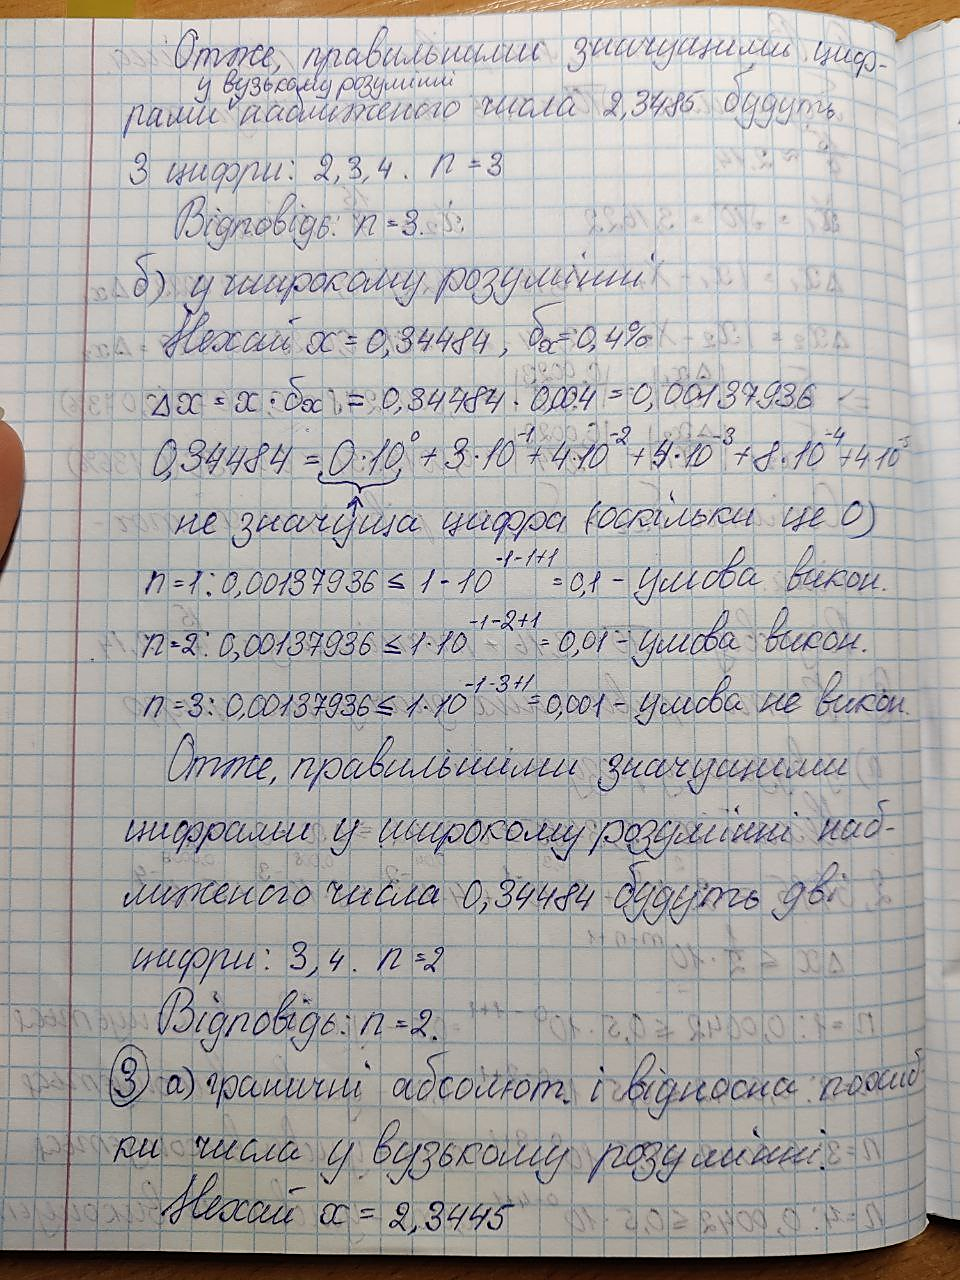 Отже, правильними значущими циф-
у вузькому розумінні
рами наближеного числа 2,3485 будуть
3 цифри: 2,3,4. n=3
Відповідь: n=3.
б) у широкому розумінні
Нехай x=0,34484, δx=0,4%
Δx = x·δx = 0,34484·0,004=0,00137936
0,34484=0·10⁰+3·10⁻¹+4·10⁻²+4·10⁻³+8·10⁻⁴+4·10⁻⁵
не значуща цифра (оскільки це 0)
n=1: 0,00137936 ≤ 1·10⁻¹⁻¹⁺¹=0,1 – умова викон.
n=2: 0,00137936 ≤ 1·10⁻¹⁻²⁺¹=0,01 – умова викон.
n=3: 0,00137936 ≤ 1·10⁻¹⁻³⁺¹=0,001 – умова не викон.
Отже, правильними значущими
цифрами у широкому розумінні наб-
лиженого числа 0,34484 будуть дві
цифри: 3,4. n=2
Відповідь: n=2.
3 а) граничні абсолют. і відносна похиб-
ки числа у вузькому розумінні.
Нехай x = 2,3445